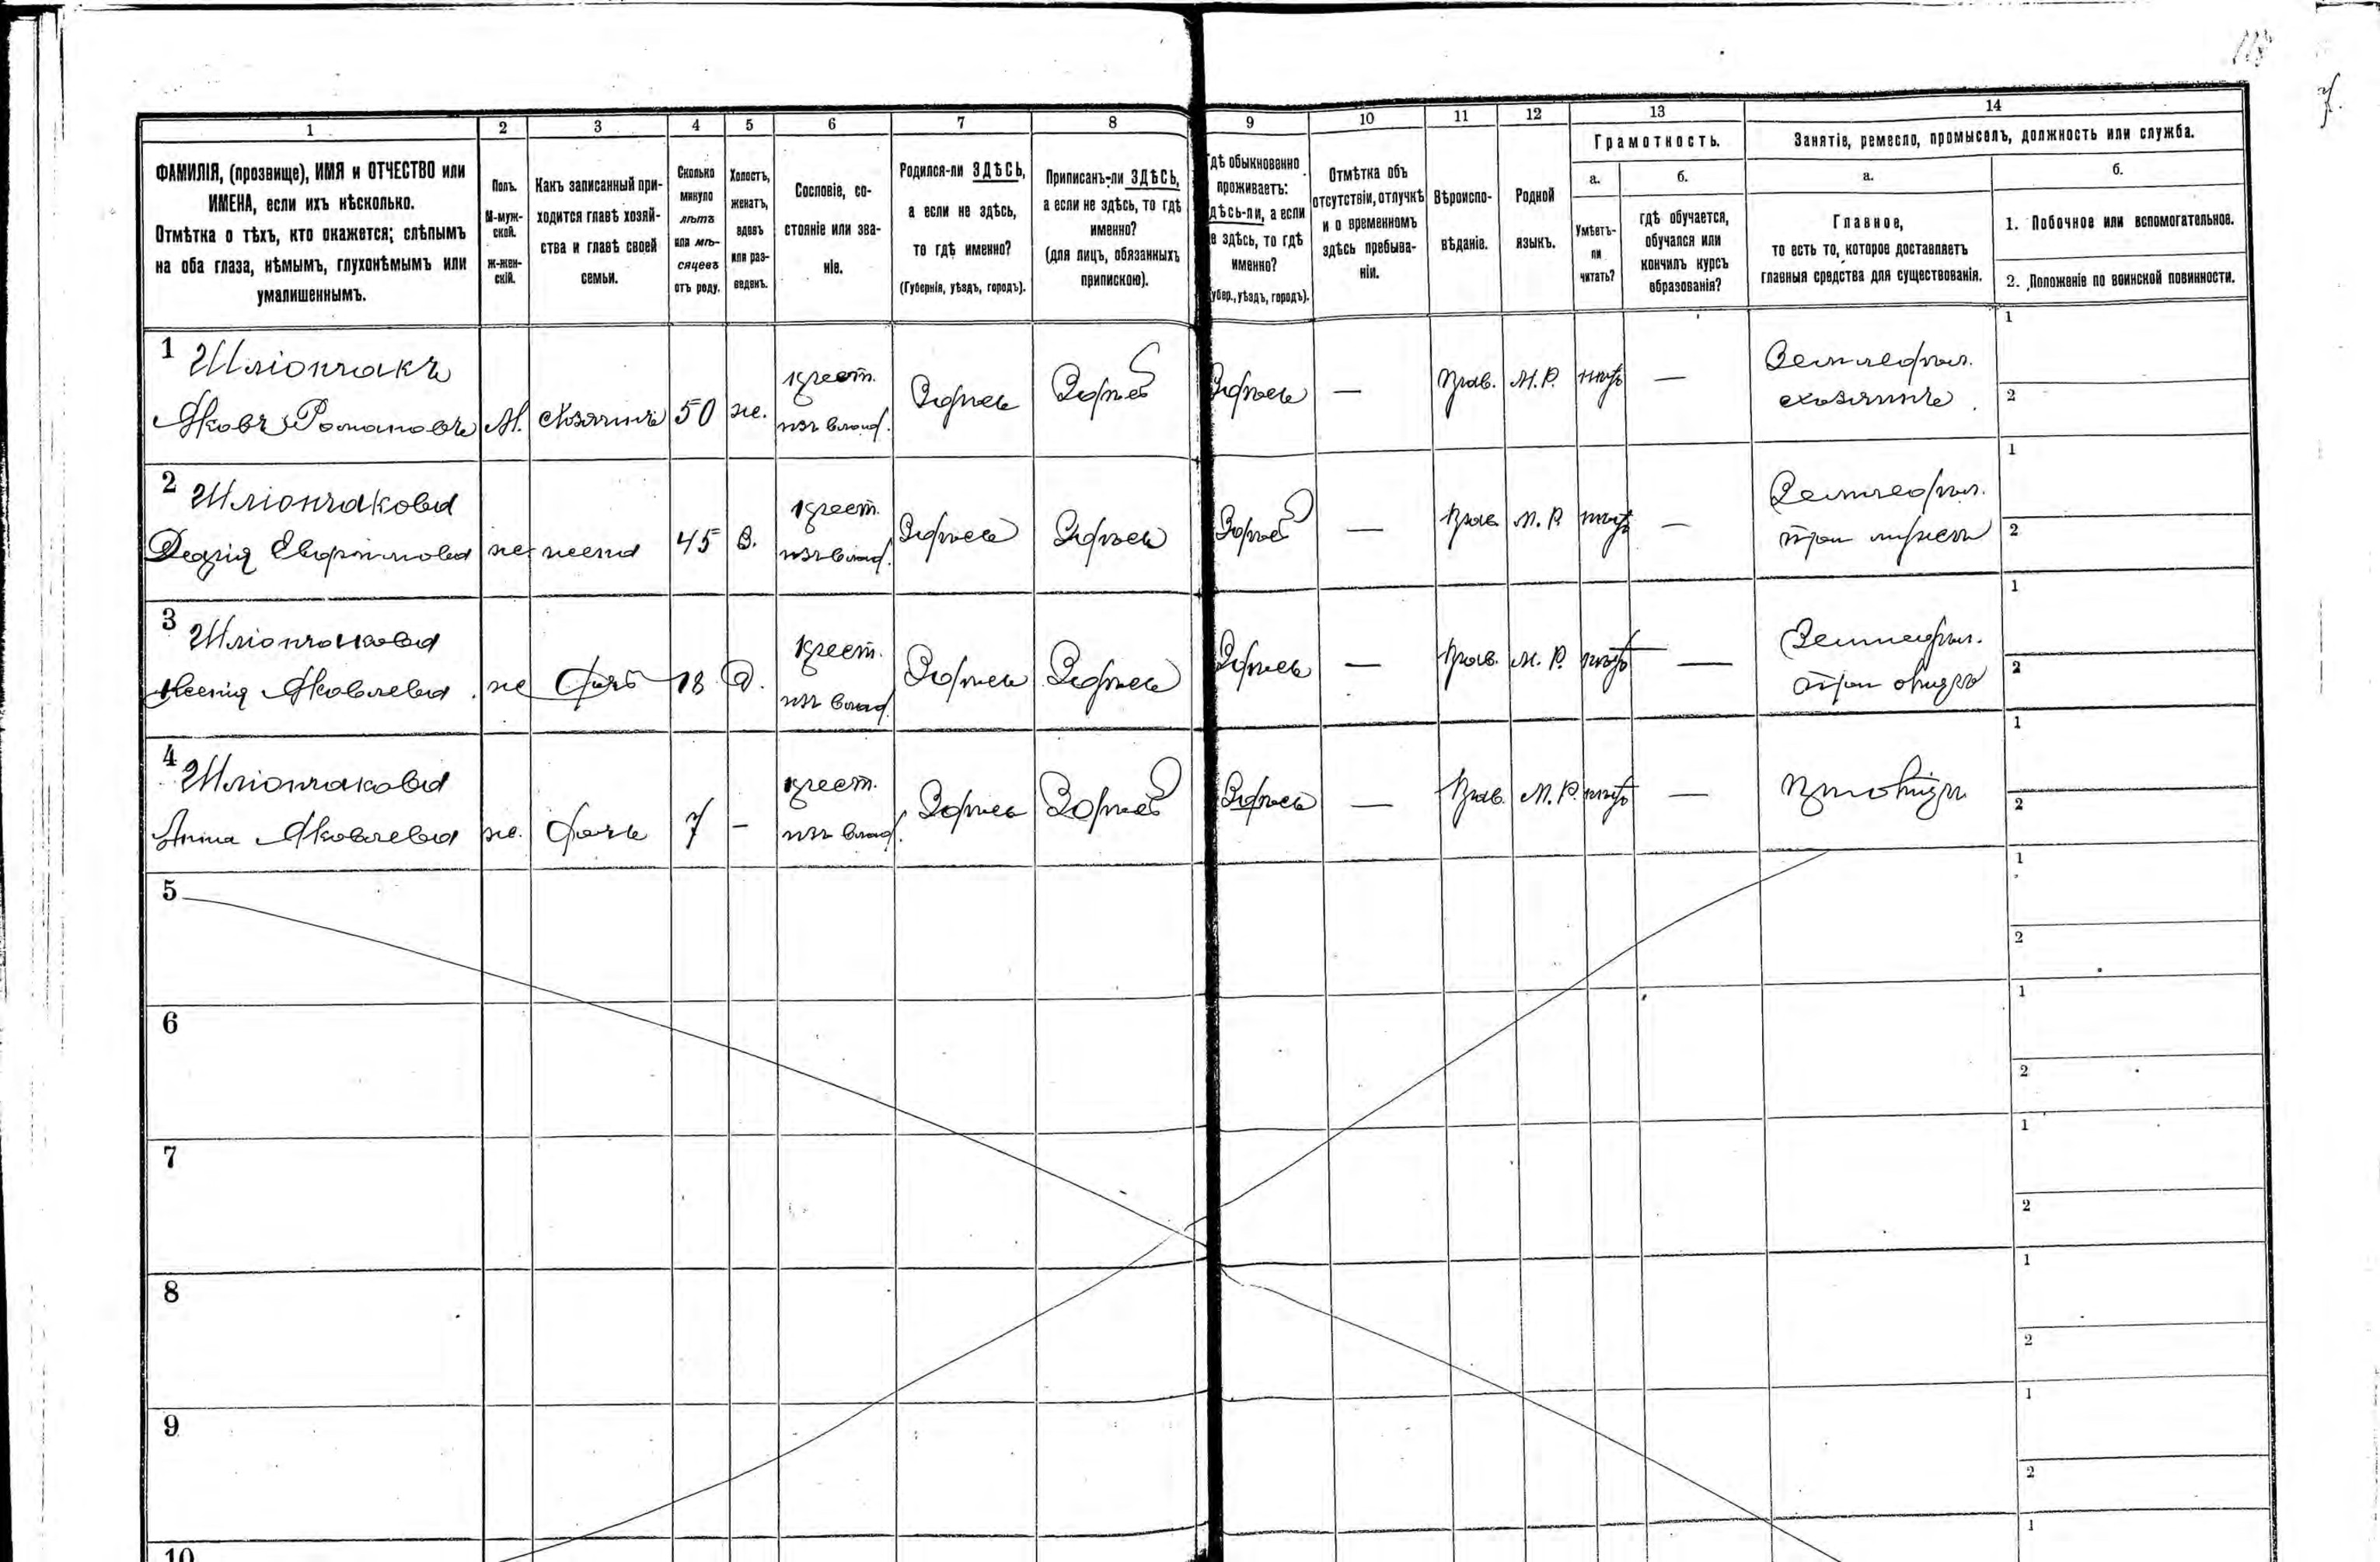 118
7.
1
2
3
4
5
6
7
8
9
10
11
12
13
14
ФАМИЛІЯ, (прозвище), ИМЯ и ОТЧЕСТВО или
ИМЕНА, если ихъ нѣсколько.
Отмѣтка о тѣхъ, кто окажется; слѣпымъ
на оба глаза, нѣмымъ, глухонѣмымъ или
умалишеннымъ.
Полъ.
М-муж-
ской.
ж-жен-
скій.
Какъ записанный при-
ходится главѣ хозяй-
ства и главѣ своей
семьи.
Сколько
минуло
лѣтъ
или мѣ-
сяцевъ
отъ роду.
Холостъ,
женатъ,
вдовъ
или раз-
веденъ.
Сословіе, со-
стояніе или зва-
ніе.
Родился-ли ЗДѢСЬ,
а если не здѣсь,
то гдѣ именно?
(Губернія, уѣздъ, городъ).
Приписанъ-ли ЗДѢСЬ,
а если не здѣсь, то гдѣ
именно?
(для лицъ, обязанныхъ
припискою).
дѣ обыкновенно
проживаетъ:
дѣсь-ли, а если
е здѣсь, то гдѣ
именно?
убер., уѣздъ, городъ).
Отмѣтка объ
отсутствіи, отлучкѣ
и о временномъ
здѣсь пребыва-
ніи.
Вѣроиспо-
вѣданіе.
Родной
языкъ.
Грамотность.
а.
Умѣетъ-
ли
читать?
б.
гдѣ обучается,
обучался или
кончилъ курсъ
образованія?
Занятіе, ремесло, промыселъ, должность или служба.
а.
Главное,
то есть то, которое доставляетъ
главныя средства для существованія.
б.
1. Побочное или вспомогательное.
2. Положеніе по воинской повинности.
1
Яковъ Романовъ
М. хозяинъ 50 ж.
крест.
изъ влад.
Здѣсь Здѣсь Здѣсь — Прав. М. Р. нѣтъ —
Земледѣл.
хозяинъ
1
2
2
ж жена 45 З.
крест.
изъ влад.
Здѣсь Здѣсь Здѣсь — Прав. М. Р. нѣтъ —
Земледѣл.
при мужѣ
1
2
3
Ксенія Яковлева ж дочь 18 Д.
крест.
изъ влад.
Здѣсь Здѣсь Здѣсь — Прав. М. Р. нѣтъ —
Земледѣл.
при отцѣ
1
2
4
Анна Яковлева ж. дочь 7 —
крест.
изъ влад.
Здѣсь Здѣсь Здѣсь — Прав. М. Р. нѣтъ —
При отцѣ
1
2
5
1
2
6
1
2
7
1
2
8
1
2
9
1
2
10
1